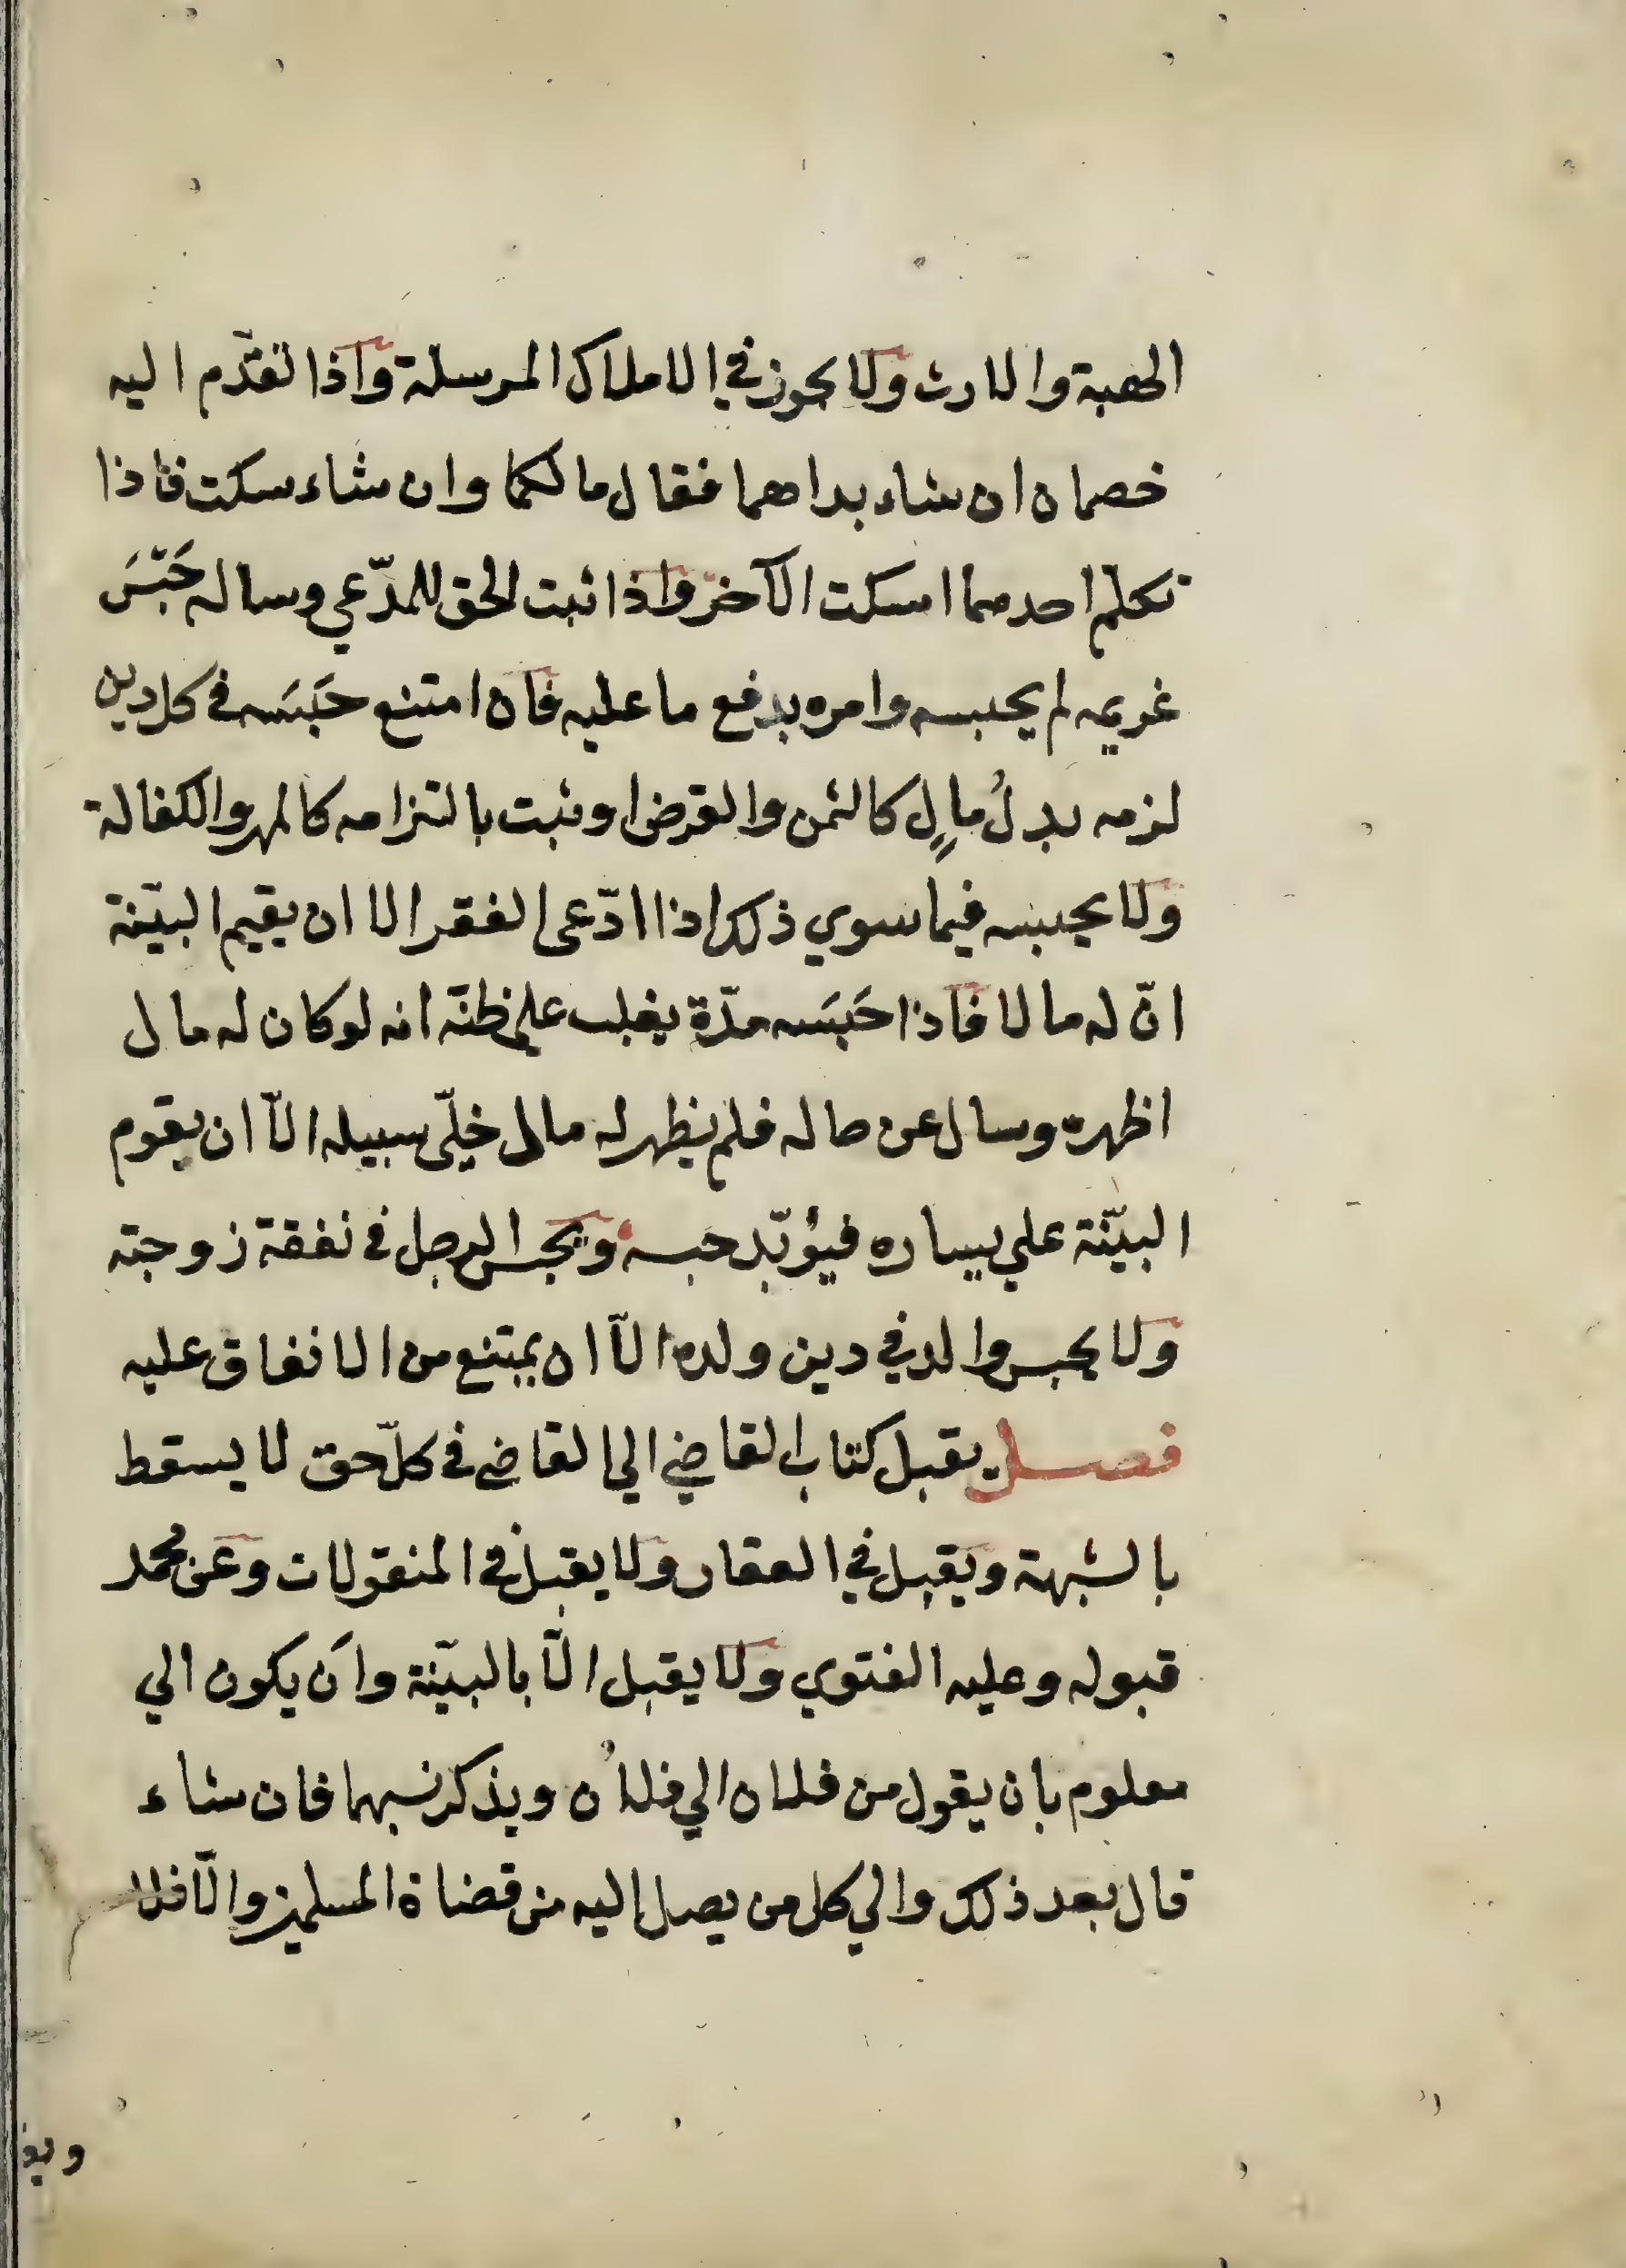 الهبة والارث ولا يجوز في الاملاك المرسلة واذا تقدّم اليه
خصمان ان شاء بداهما فقال مالكما وان شاء سكت فاذا
تكلم احدهما اسكت الآخر واذا ثبت الحق للمدّعي وساله حَبْسَ
غريمه لم يحبسه وامره بدفع ما عليه فان امتنع حَبَسَه في كل دين
لزمه بدلُ مالٍ كالثمن والقرض او ثبت بالتزامه كالمهر والكفالة
ولا يحبسه فيما سوي ذلك اذا ادّعى الفقر الا ان يقيم البيّنة
انّ له مالا فاذا حَبَسَه مدّة يغلب علي ظنّه انه لو كان له مال
اظهره وسال عن حاله فلم يظهر له مال خلّى سبيله الّا ان يقوم
البيّنة علي يساره فيؤبّد حبسه ويحبس الرجل في نفقة زوجته
ولا يحبس والد في دين ولده الّا ان يمتنع من الانفاق عليه
فصل يقبل كتاب القاضي الي القاضي في كلّ حق لا يسقط
بالشبهة ويقبل في العقار ولا يقبل في المنقولات وعن محمد
قبوله وعليه الفتوي ولا يقبل الّا بالبيّنة وان يكون الي
معلوم بان يقول من فلان الي فلان ويذكر نسبهما فان شاء
قال بعد ذلك والي كل من يصل اليه من قضاة المسلمين والّا فلا